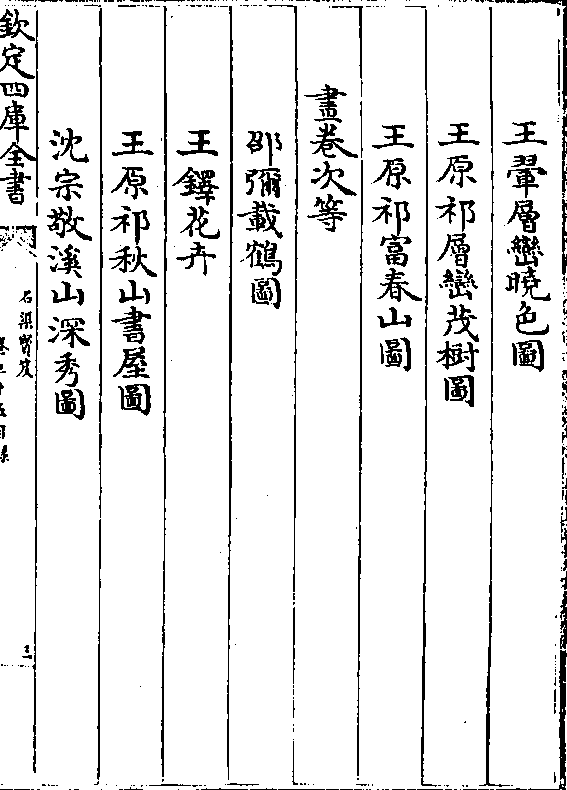 王翬層巒曉色圖
王原祁層巒茂樹圖
王原祁富春山圖
畫卷次等
邵彌載鶴圖
王鐸花卉
王原祁秋山書屋圖
沈宗敬溪山深秀圖
欽定四庫全書
石渠寶笈
三